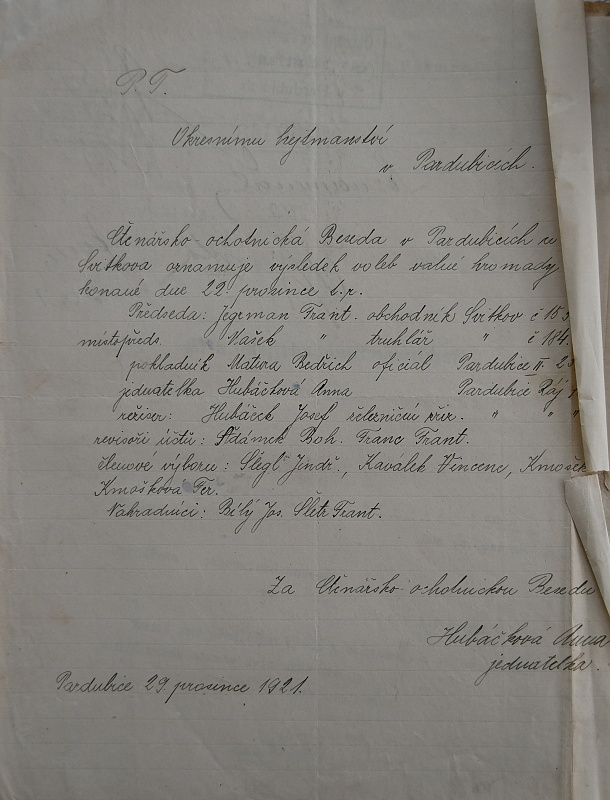 P. T.
Okresnímu hejtmanství
v Pardubicích.
Čtenářsko-ochotnická Beseda v Pardubicích u
Svítkova oznamuje výsledek voleb valné hromady
konané dne 22. prosince t.r.
Předseda: Jegrman Frant. obchodník Svítkov č 153
místopředs. Vašek " truhlář " č 184.
pokladník Matura Bedřich oficiál Pardubice II.
jednatelka Hubáčková Anna Pardubice Ráj
režiser: Hubáček Josef železniční zříz. " " "
revisoři účtů: Adámek Boh. Franc Frant.
členové výboru: Šlégl Jindř., Kaválek Vincenc, Kmošek
Kmošková Ter.
Náhradníci: Bílý Jos. Šletr Frant.
Za Čtenářsko-ochotnickou Besedu
Hubáčková Anna
jednatelka.
Pardubice 29. prosince 1921.